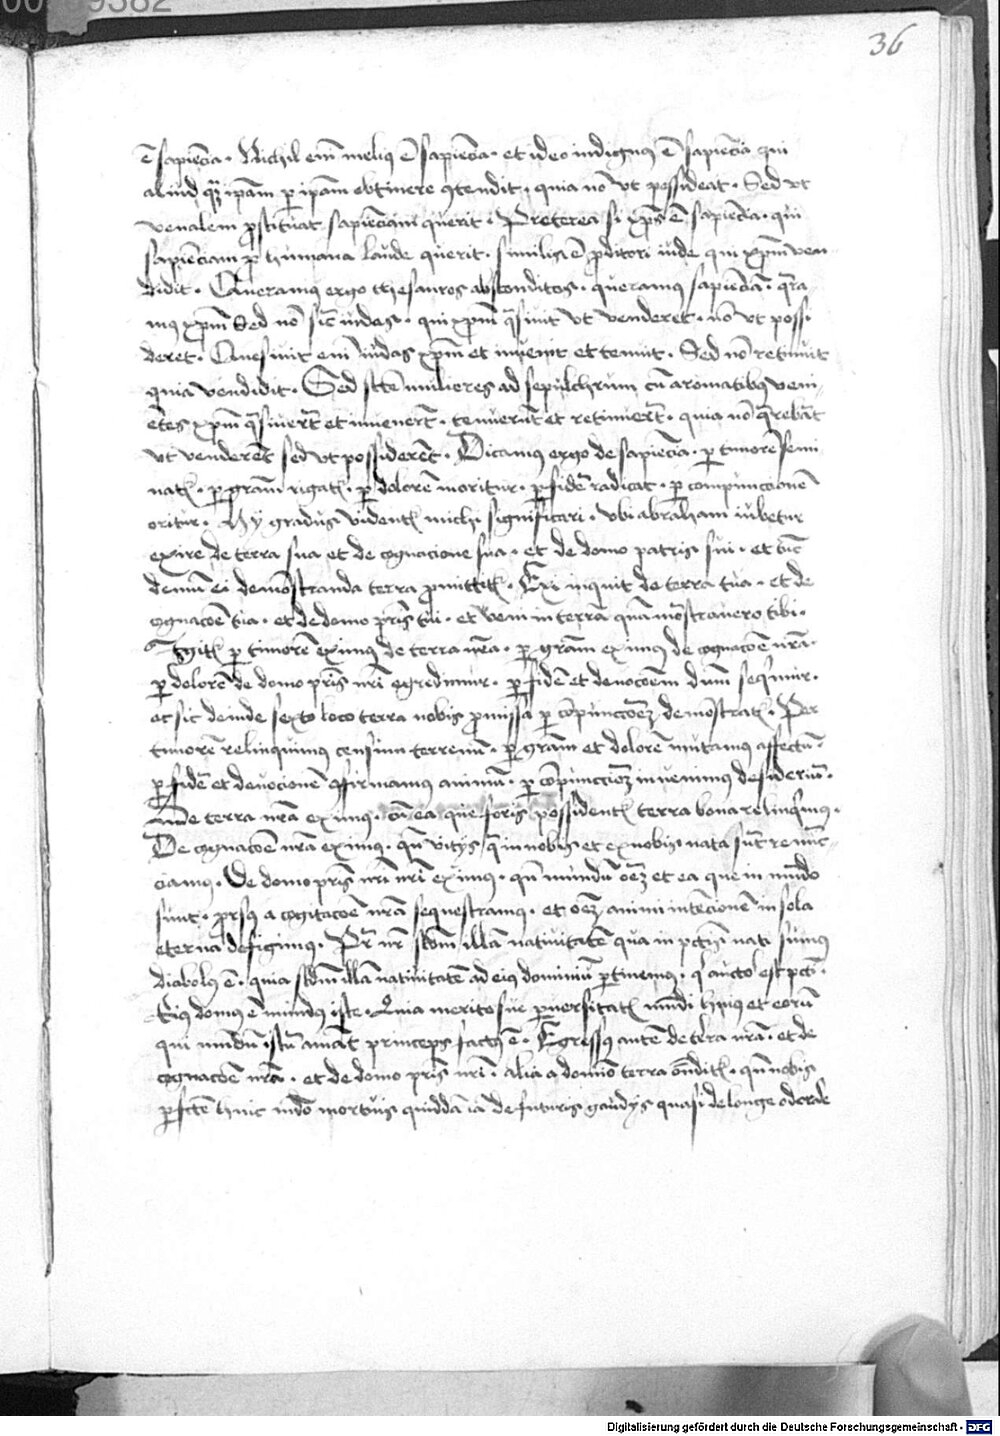 36
ē sapiēcia · Nichil em̄ melius ē sapiēcia · et ideo indignus ē sapiēcia qui
aliud qꝫ ipām per ipām obtinere ꝯtendit · quia nō vt possideat · Sed vt
venalem prostituat sapienciam querit · Preterea si xp̄s ē sapiēcia · qui
sapiēciam pro humana laude querit · similis ē proditori iude qui xp̄m ven-
didit · Queramus ergo thesauros absconditos · queramus sapiēciā · q̄ra-
mus xp̄m Sed nō sic iudas · qui xp̄m q̄siuit vt venderet · nō vt possi-
deret · Quesiuit em̄ iudas xp̄m et inuenit et tenuit · Sed nō retinuit
quia vendidit · Sed scē mulieres ad sepulchrum cū aromatibus veni-
ētes xp̄m q̄siuerūt et inuenerūt · tenuerūt et retinuerūt · quia nō q̄rebāt
vt venderēt sed vt possiderēt · Dicamus ergo de sapiēcia · per timorē semi-
natur · per grām rigatur · per dolorē moritur · per fidē radicat · per compunccionē
oritur · Hy gradus videntur michi significari · vbi abraham iubetur
exire de terra sua et de cognacione sua · et de domo patris sui · et tūc
demū ei demōstranda terra promittitur · Exi inquit de terra tua · et de
cognacōe tua · et de domo pr̄is tui · et veni in terrā quā mōstrauero tibi ·
Igitur per timorē eximus de terra nr̄a · per grām eximus de cognacōe nr̄a ·
per dolorē de domo pr̄is nr̄i egredimur · per fidē et deuocōem deum sequimur ·
et sic deinde sexto loco terra nobis promissa per cōpunccōeꝫ demōstratur · Per
timorē relinquimus censum terrenū · per grām et dolorē mutamus affectū ·
per fidē et deuocionē ꝯfirmamus animū · per cōpunccioeꝫ inuenimus desideriū ·
De terra nr̄a eximus · cū ea que foris possidentur terra bona relinquimus ·
De cognacōe nr̄a eximus · qn̄ vitijs q̄ in nobis et ex nobis nata sūt renūc-
ciamus · De domo pr̄is nr̄i nr̄i eximus · qn̄ mundū oēꝫ et ea que in mūdo
sunt · prorsus a cogitacōe nr̄a sequestramus · et oēꝫ animi intencionē in sola
eterna defigimus · Pr̄ nr̄ scdm illā natiuitatē qua in pctis nati sumus
diabolus ē · quia scdm illā natiuitatē ad eius dominiū pertinemus · q auctor est pcti ·
Eius domus ē mundus iste · Quia merito sue peruersitatis mūdi huius et eorū
qui mūdū istū amāt princeps factus ē · Egressis autē de terra nr̄a · et de
cognacōe nr̄a · et de domo pr̄is nr̄i · alia a domīo terra ōnditur · qn̄ nobis
perfcē huic mūdo mortuis quiddā iā de futuris gaudijs quasi de longe odorād
Digitalisierung gefördert durch die Deutsche Forschungsgemeinschaft · DFG